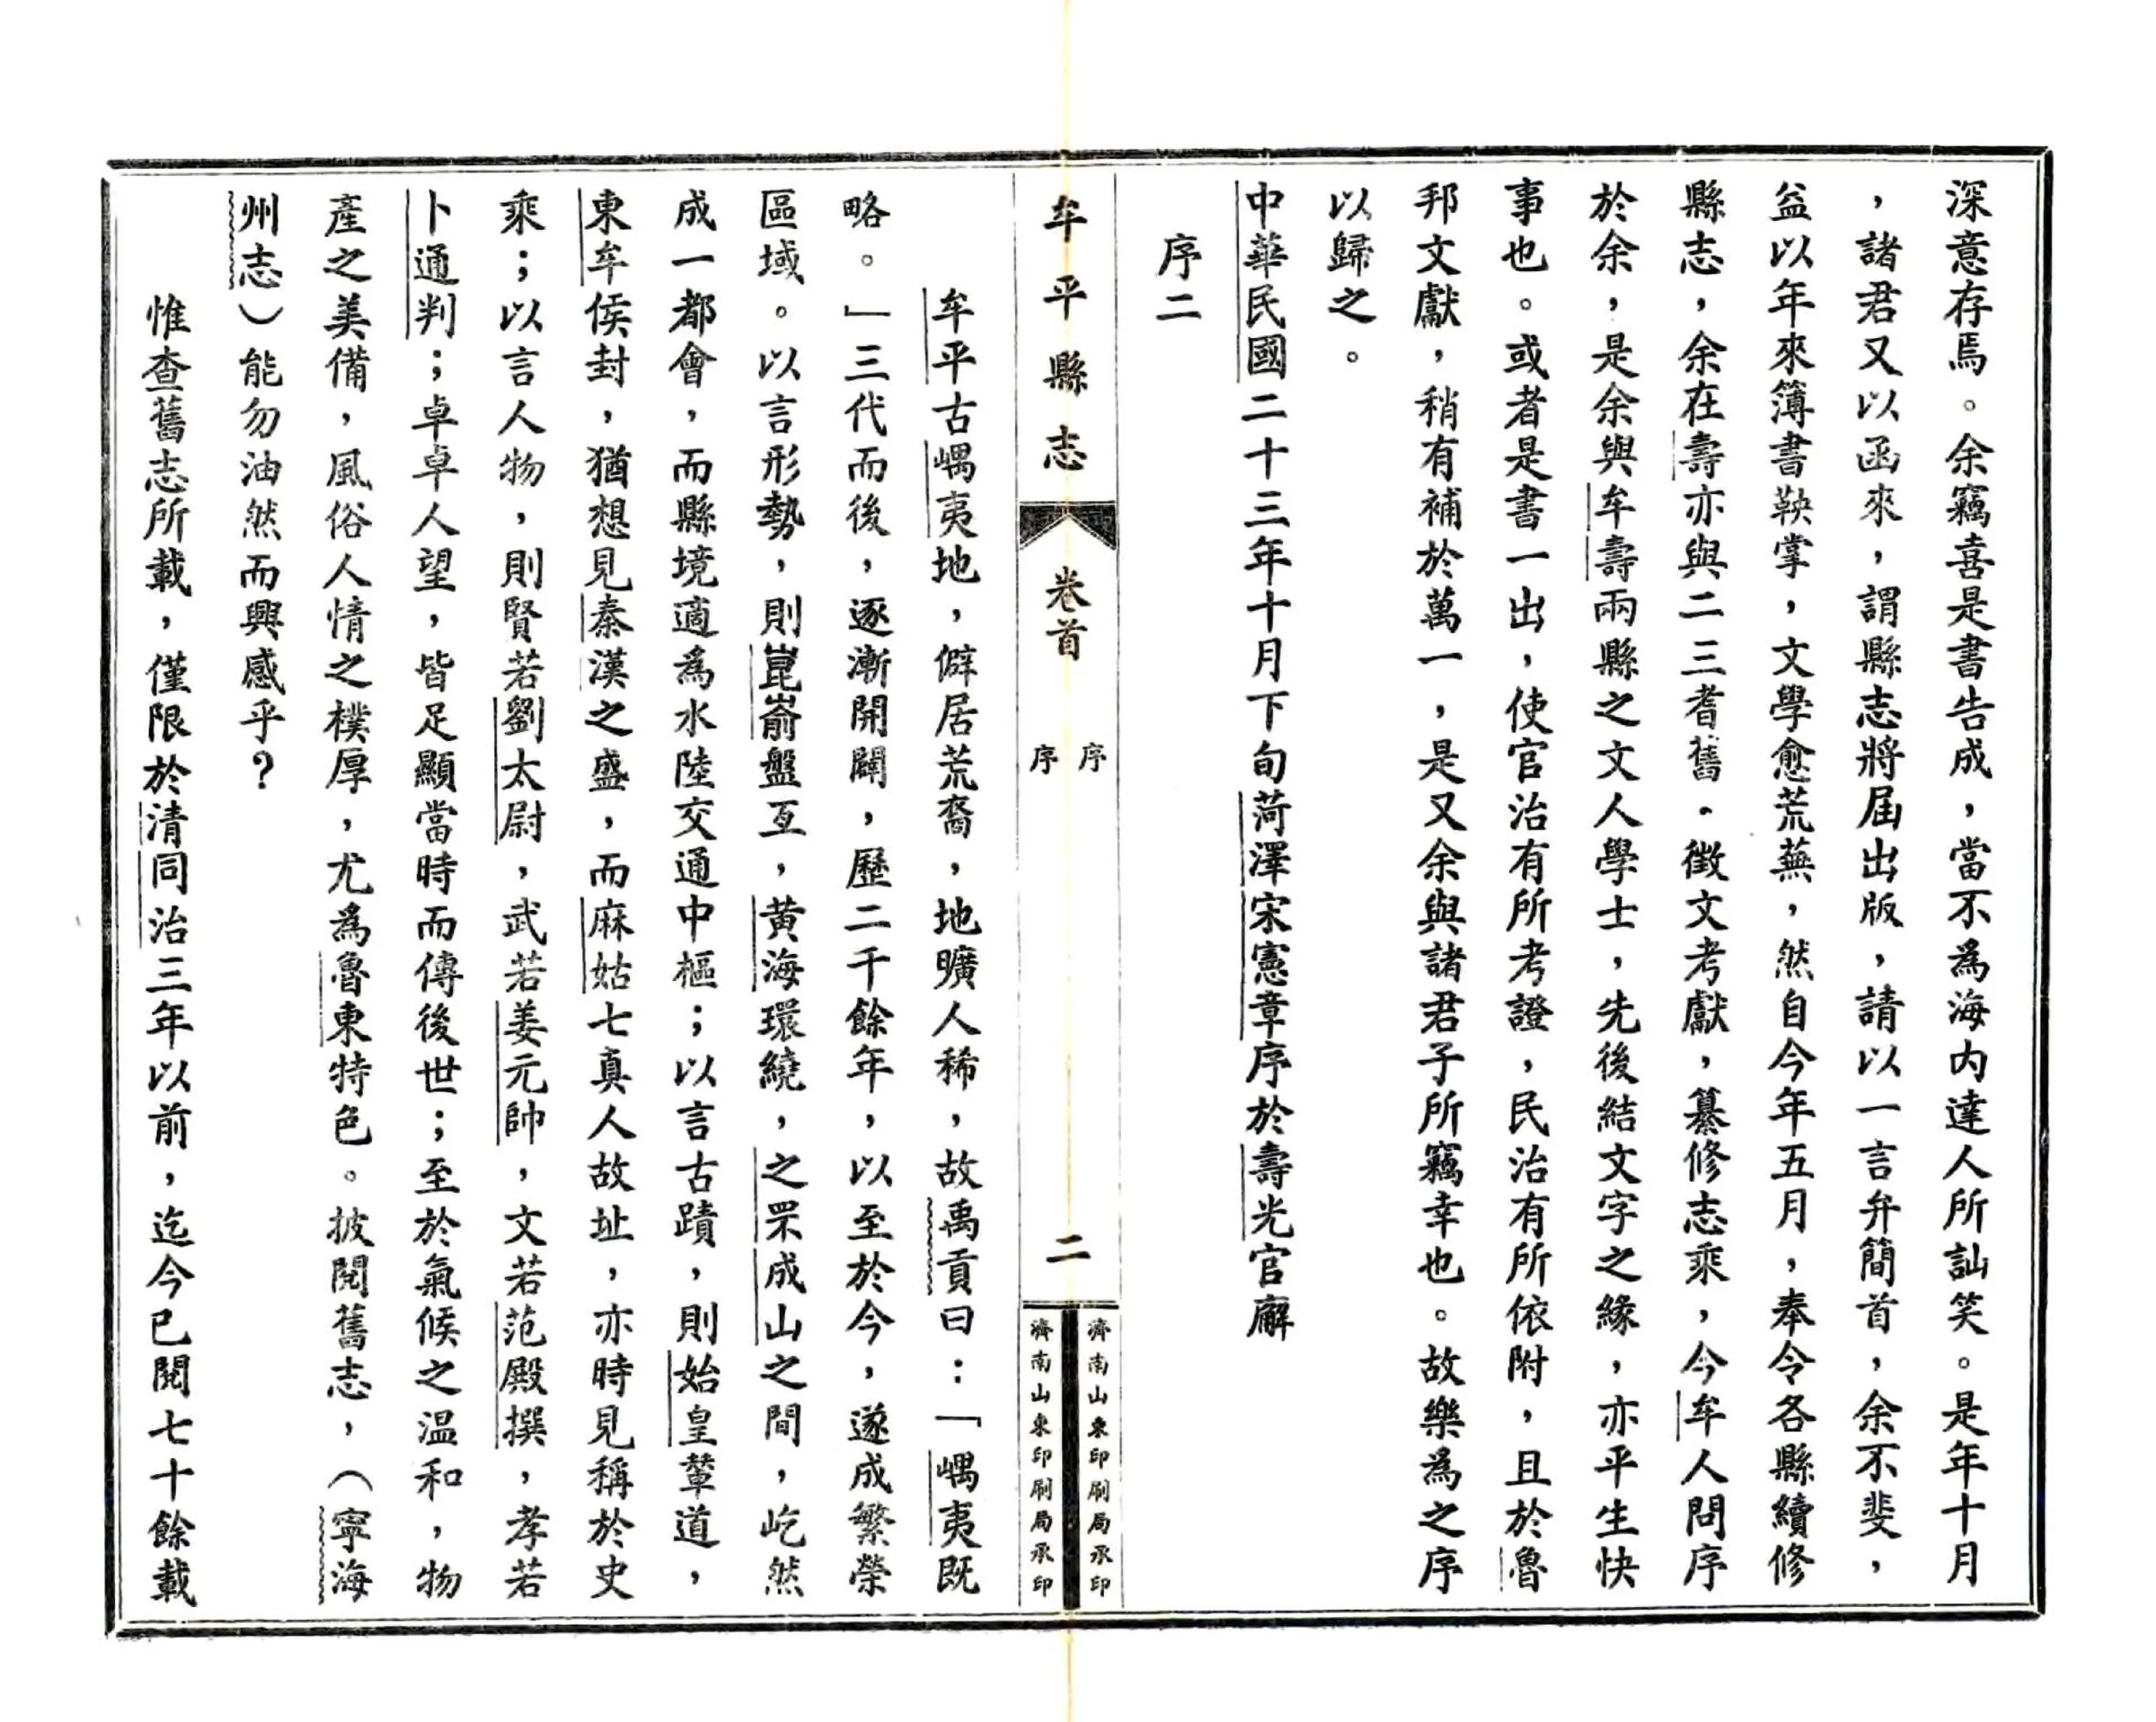 深意存焉。余竊喜是書告成，當不為海内達人所訕笑。是年十月
，諸君又以函來，謂縣志將屆出版，請以一言弁簡首，余不斐，
益以年來簿書鞅掌，文學愈荒蕪，然自今年五月，奉令各縣續修
縣志，余在壽亦與二三耆舊．徵文考獻，纂修志乘，今牟人問序
於余，是余與牟壽兩縣之文人學士，先後結文字之緣，亦平生快
事也。或者是書一出，使官治有所考證，民治有所依附，且於魯
邦文獻，稍有補於萬一，是又余與諸君子所竊幸也。故樂為之序
以歸之。
中華民國二十三年十月下旬菏澤宋憲章序於壽光官廨
序二
牟平縣志
卷首
序
序
二
濟南山東印刷局承印
濟南山東印刷局承印
牟平古嵎夷地，僻居荒裔，地曠人稀，故禹貢曰：「嵎夷既
略。」三代而後，逐漸開闢，歷二千餘年，以至於今，遂成繁榮
區域。以言形勢，則崑嵛盤互，黄海環繞，之罘成山之間，屹然
成一都會，而縣境適為水陸交通中樞；以言古蹟，則始皇輦道，
東牟侯封，猶想見秦漢之盛，而麻姑七真人故址，亦時見稱於史
乘；以言人物，則賢若劉太尉，武若姜元帥，文若范殿撰，孝若
卜通判；卓卓人望，皆足顯當時而傳後世；至於氣候之温和，物
產之美備，風俗人情之樸厚，尤為魯東特色。披閱舊志，（寧海
州志）能勿油然而興感乎？
惟查舊志所載，僅限於清同治三年以前，迄今已閱七十餘載